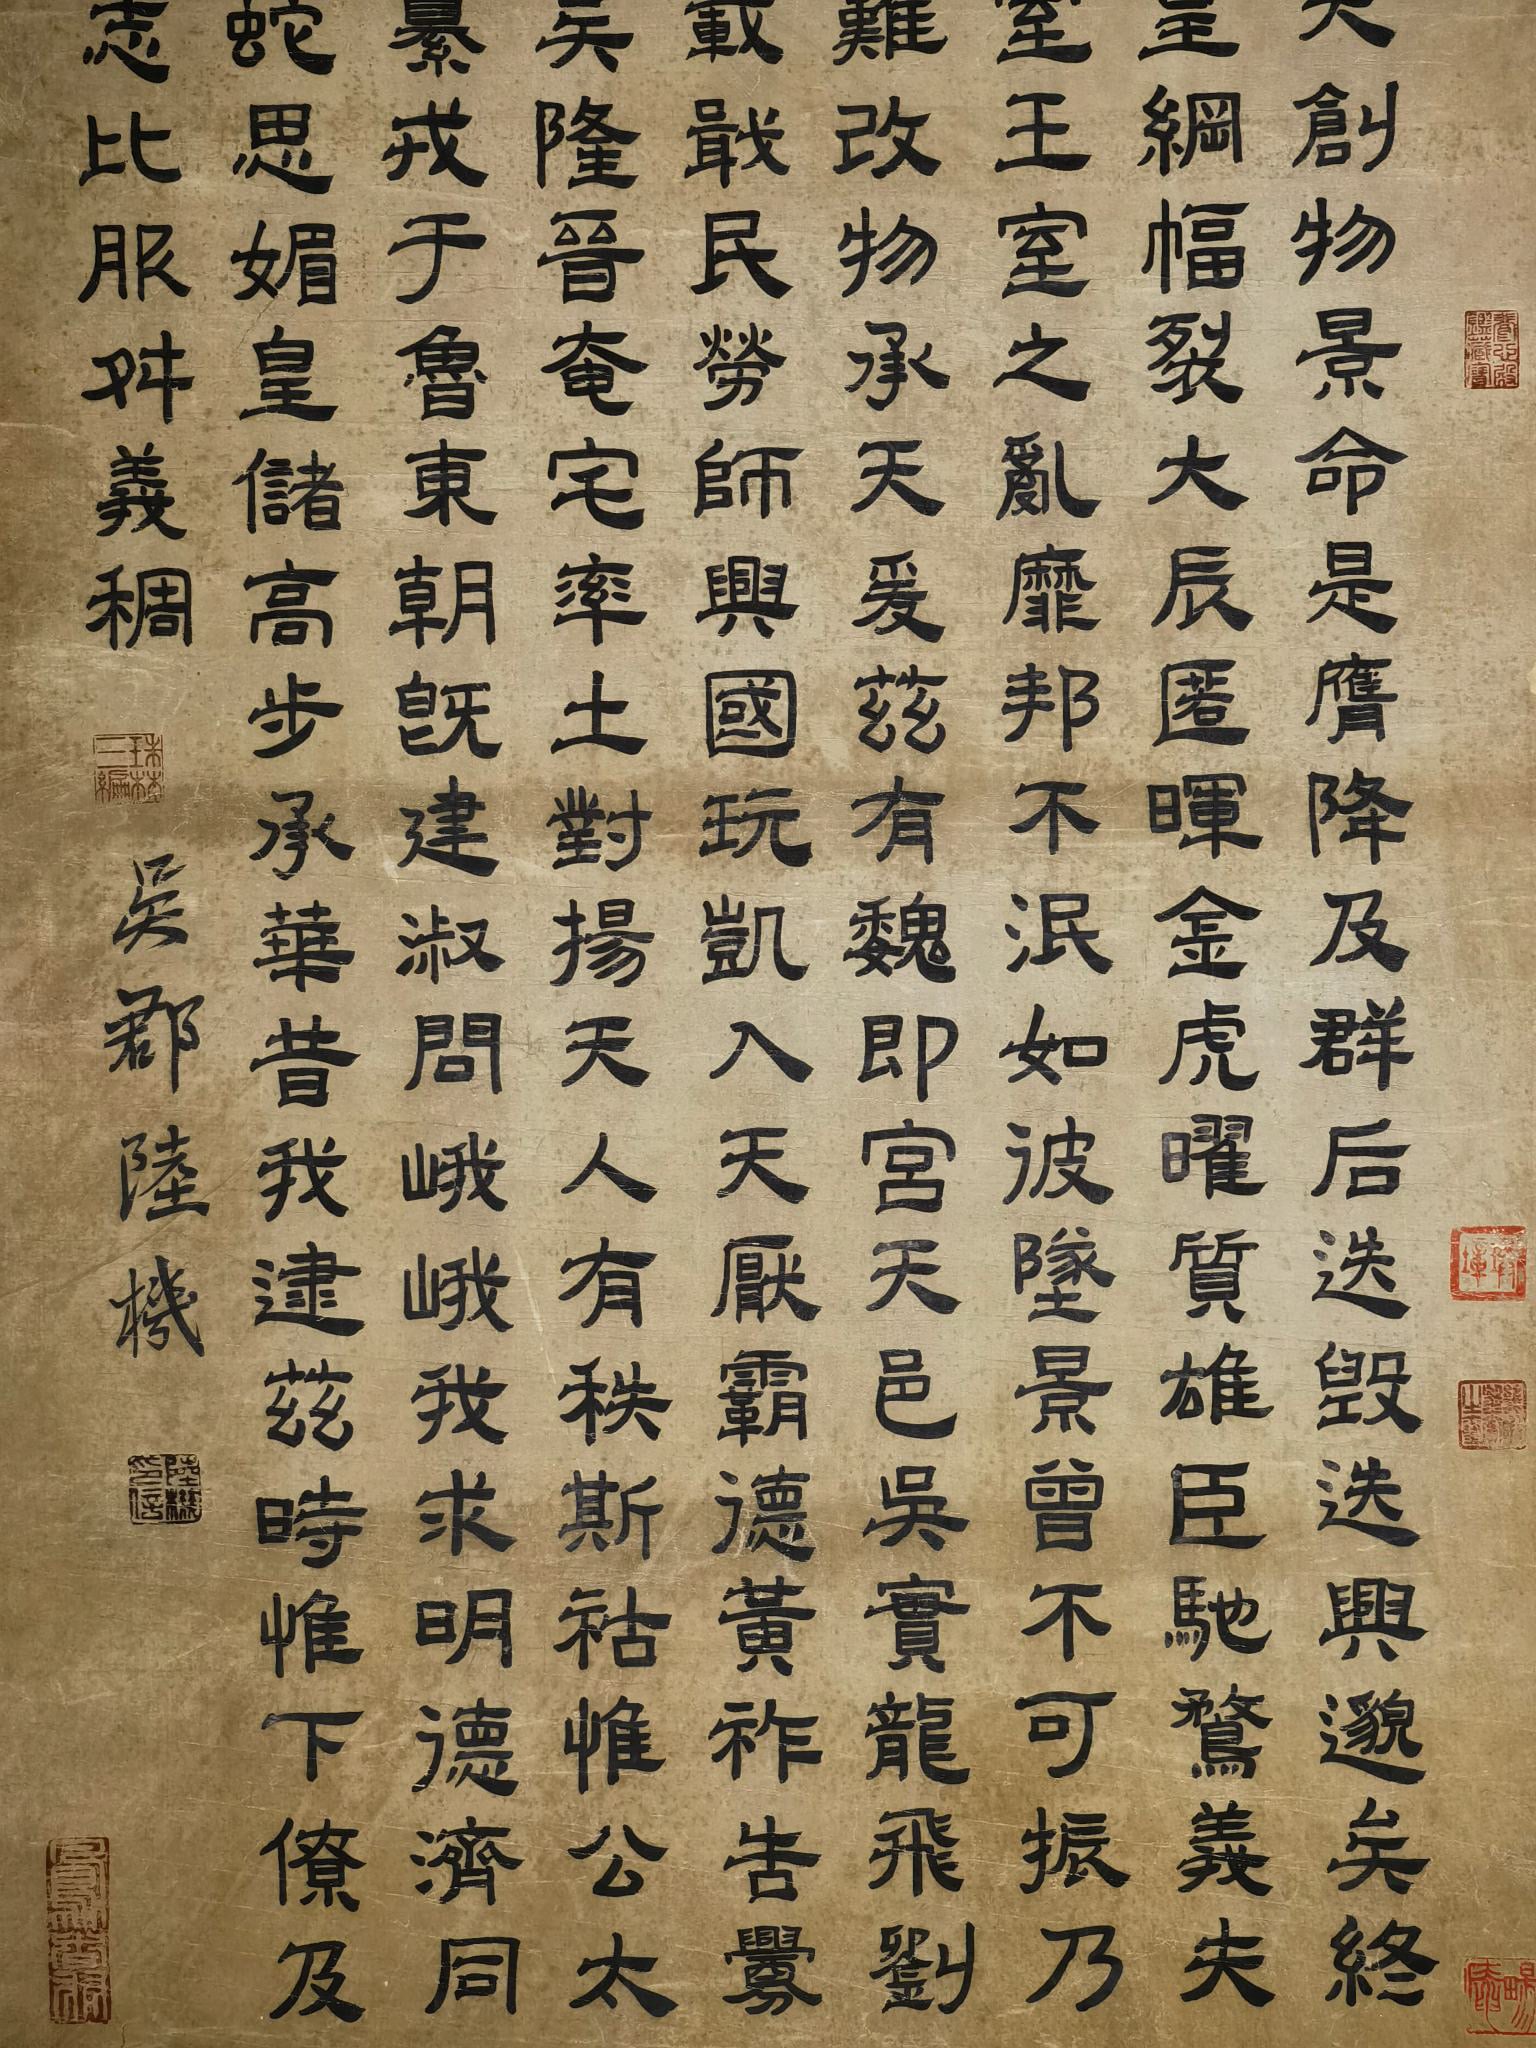 天創物景命是膺降及群后迭毀迭興邈矣終
皇綱幅裂大辰匿暉金虎曜質雄臣馳騖義夫
室王室之亂靡邦不泯如彼墜景曾不可振乃
難改物承天爰茲有魏即宮天邑吳實龍飛劉
載戢民勞師興國玩凱入天厭霸德黃祚告釁
矣隆晉奄宅率土對揚天人有秩斯祜惟公太
纂戎于魯東朝既建淑問峨峨我求明德濟同
蛇思媚皇儲高步承華昔我逮茲時惟下僚及
志比服舛義稠
吳郡陸機
養心殿鑑藏寶
珠林三編